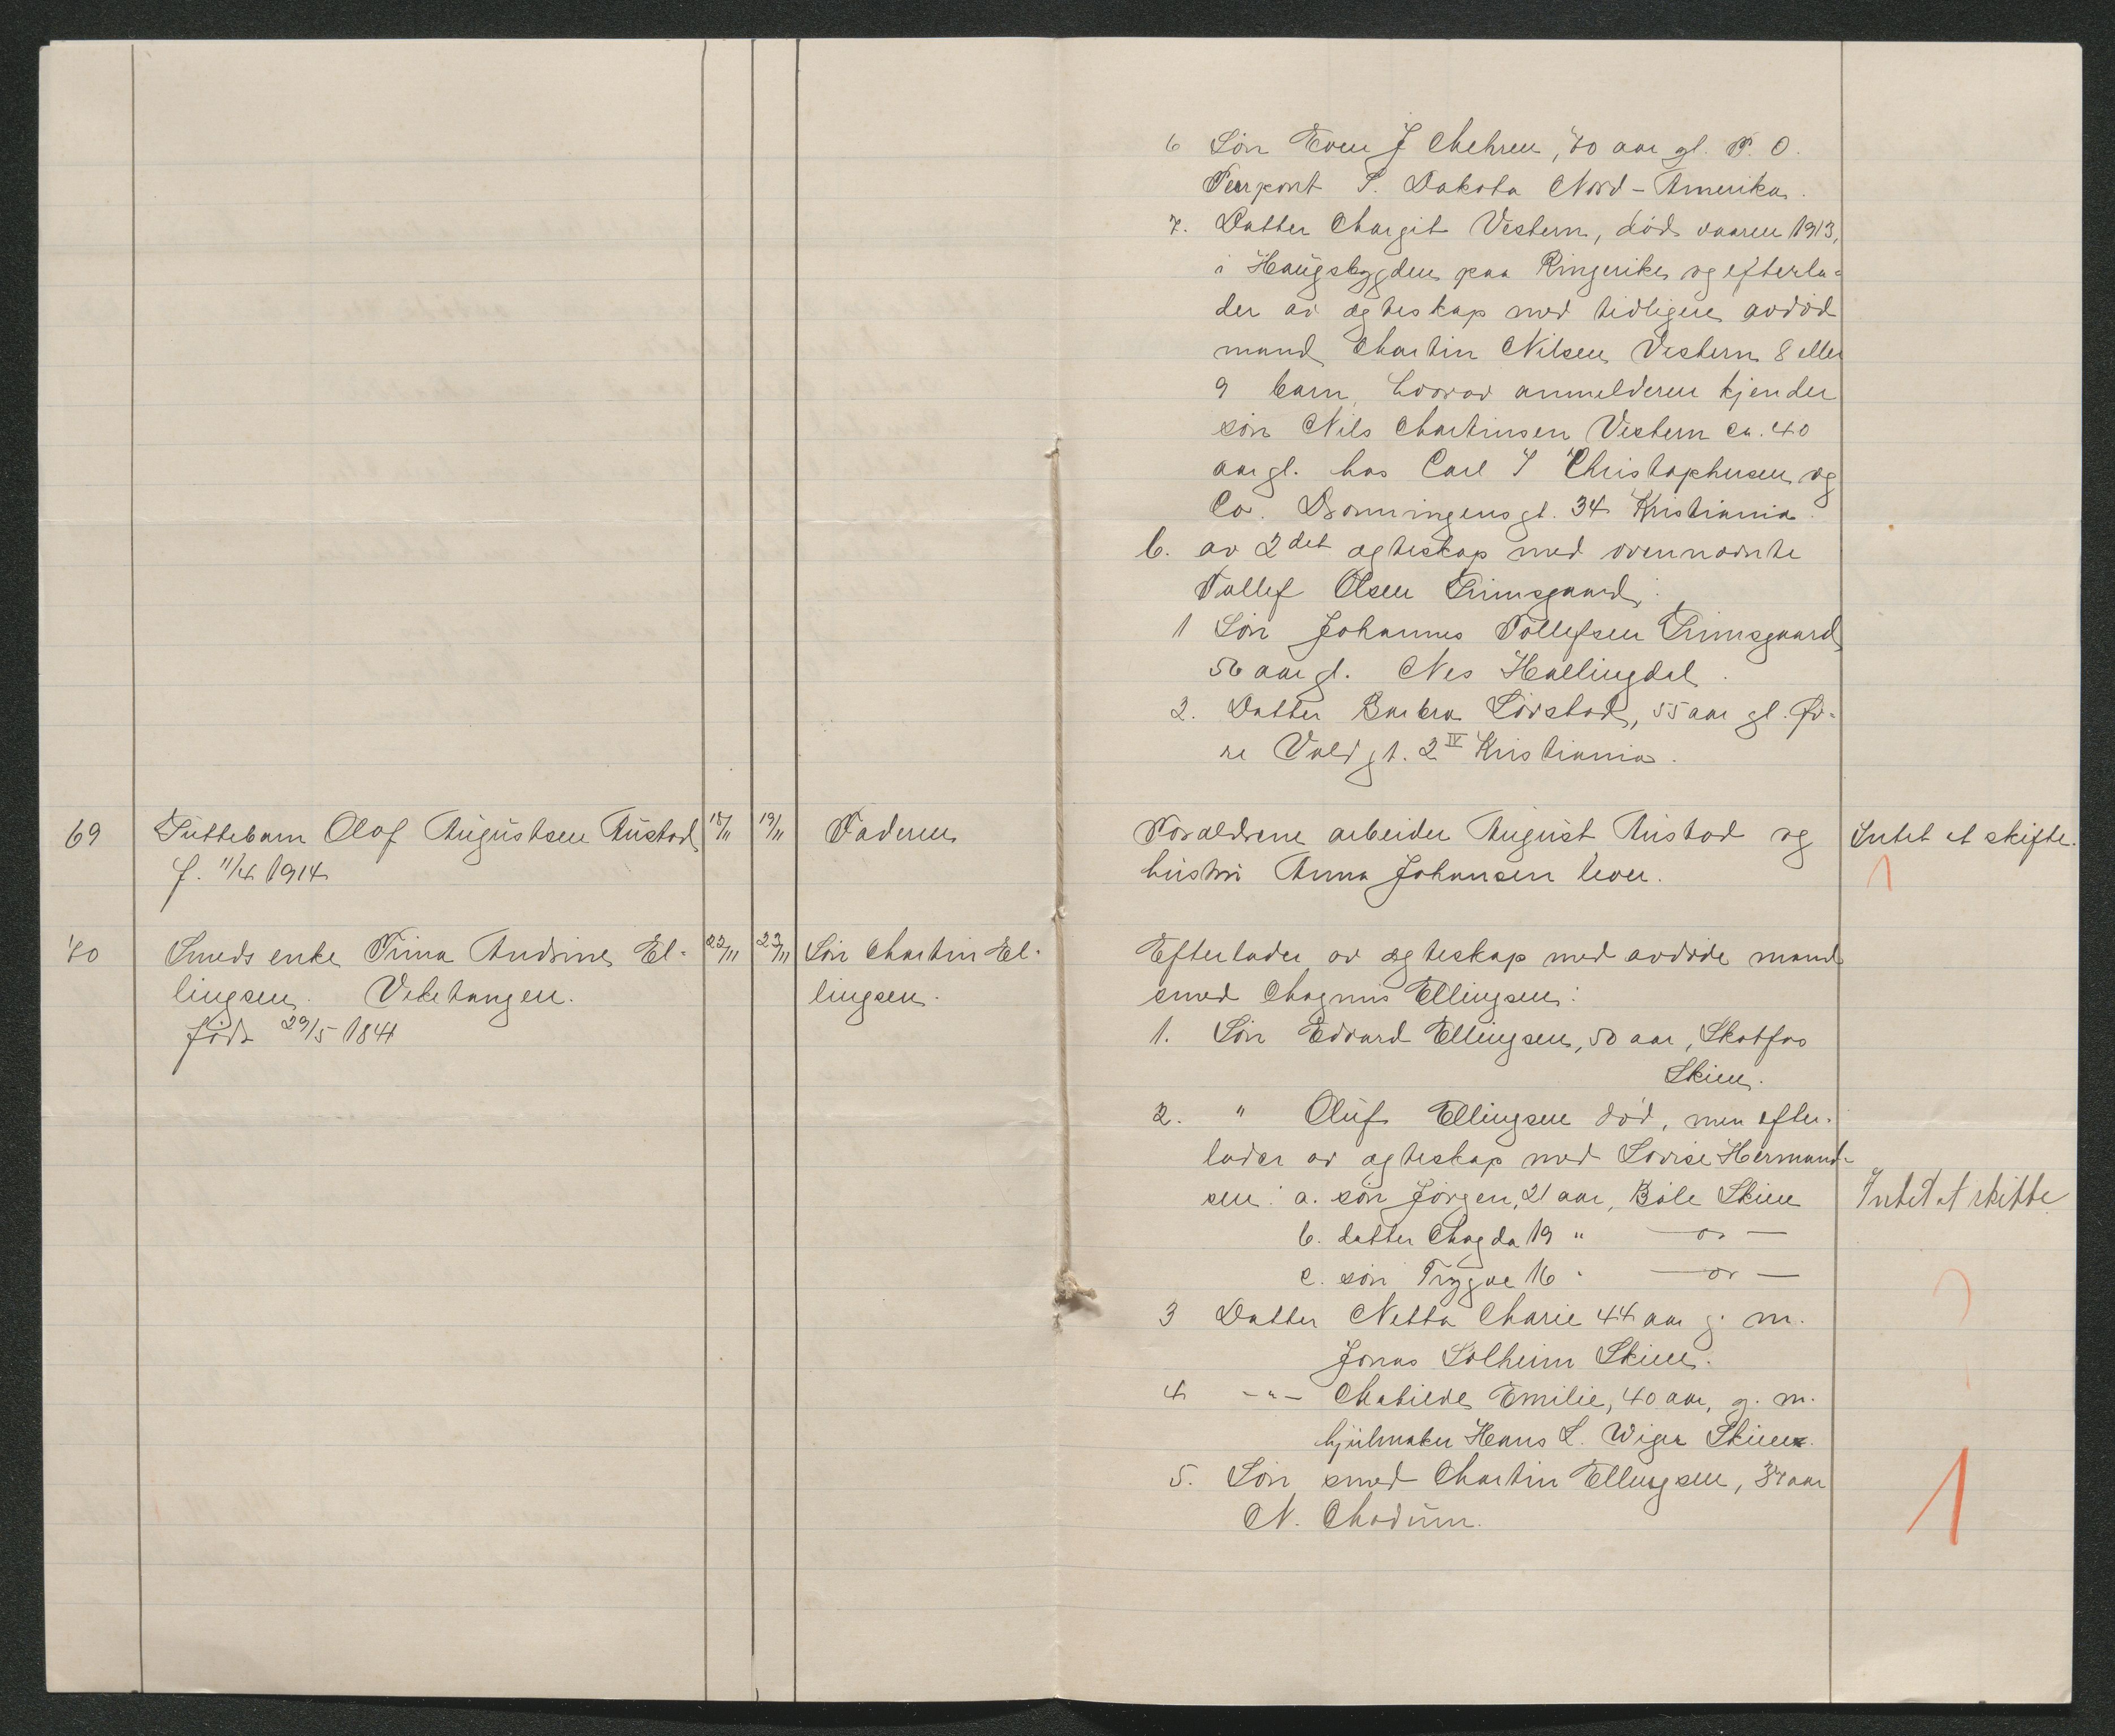 6 Søn Even J Mehren, 70 aar gl. P. O.
Pierpont S. Dakota Nord-Amerika.
7. Datter Margit Vestern, död vaaren 1913,
i Haugsbygden paa Ringerike og efterla-
der av egteskap med tidligere avdöd
mand Martin Nilsen Vestern 8 eller
9 barn, hvorav anmelderen kjender
sön Nils Martinsen Vestern ca. 40
aar gl. hos Carl J Christophersen og
Co. Dronningens gt. 34 Kristiania.
b. av 2det egteskap med ovennævnte
Tollef Olsen Trimsgaard:
1 Sön Johannes Tollefsen Trimsgaard
56 aar gl. Nes Hallingdal.
2. Datter Barbra Lövstad, 55 aar gl. Öv-
re Vold gt. 2 IV Kristiania.
69 Pattebarn Olaf Augustsen Austad 18/11 19/11 Faderen Forældrene arbeider August Austad og Intet at skifte.
f. 11/4 1914 hustru Anna Johansen lever. 1
70 Smeds enke Trina Andrine El- 22/11 23/11 Sön Martin El- Efterlader av egteskap med avdöde mand
lingsen. Viketangen. lingsen. smed Magnus Ellingsen:
född 29/5 1841 1. Sön Edvard Ellingsen, 50 aar, Skotfos
Skien.
2. " Oluf Ellingsen död, men efter-
lader av egteskap med Lovise Hermand-
sen: a. sön Jörgen, 21 aar, Böle Skien Intet at skifte
b. datter Magda 19 " — " —
c. sön Trygve 16 " — " —
3 Datter Netta Marie 44 aar g. m.
Jonas Solheim Skien.
4 -"- Matilde Emilie, 40 aar, g. m.
hjulmaker Hans L. Wiger Skien.
5. Sön smed Martin Ellingsen, 37 aar 1
N. Modum.